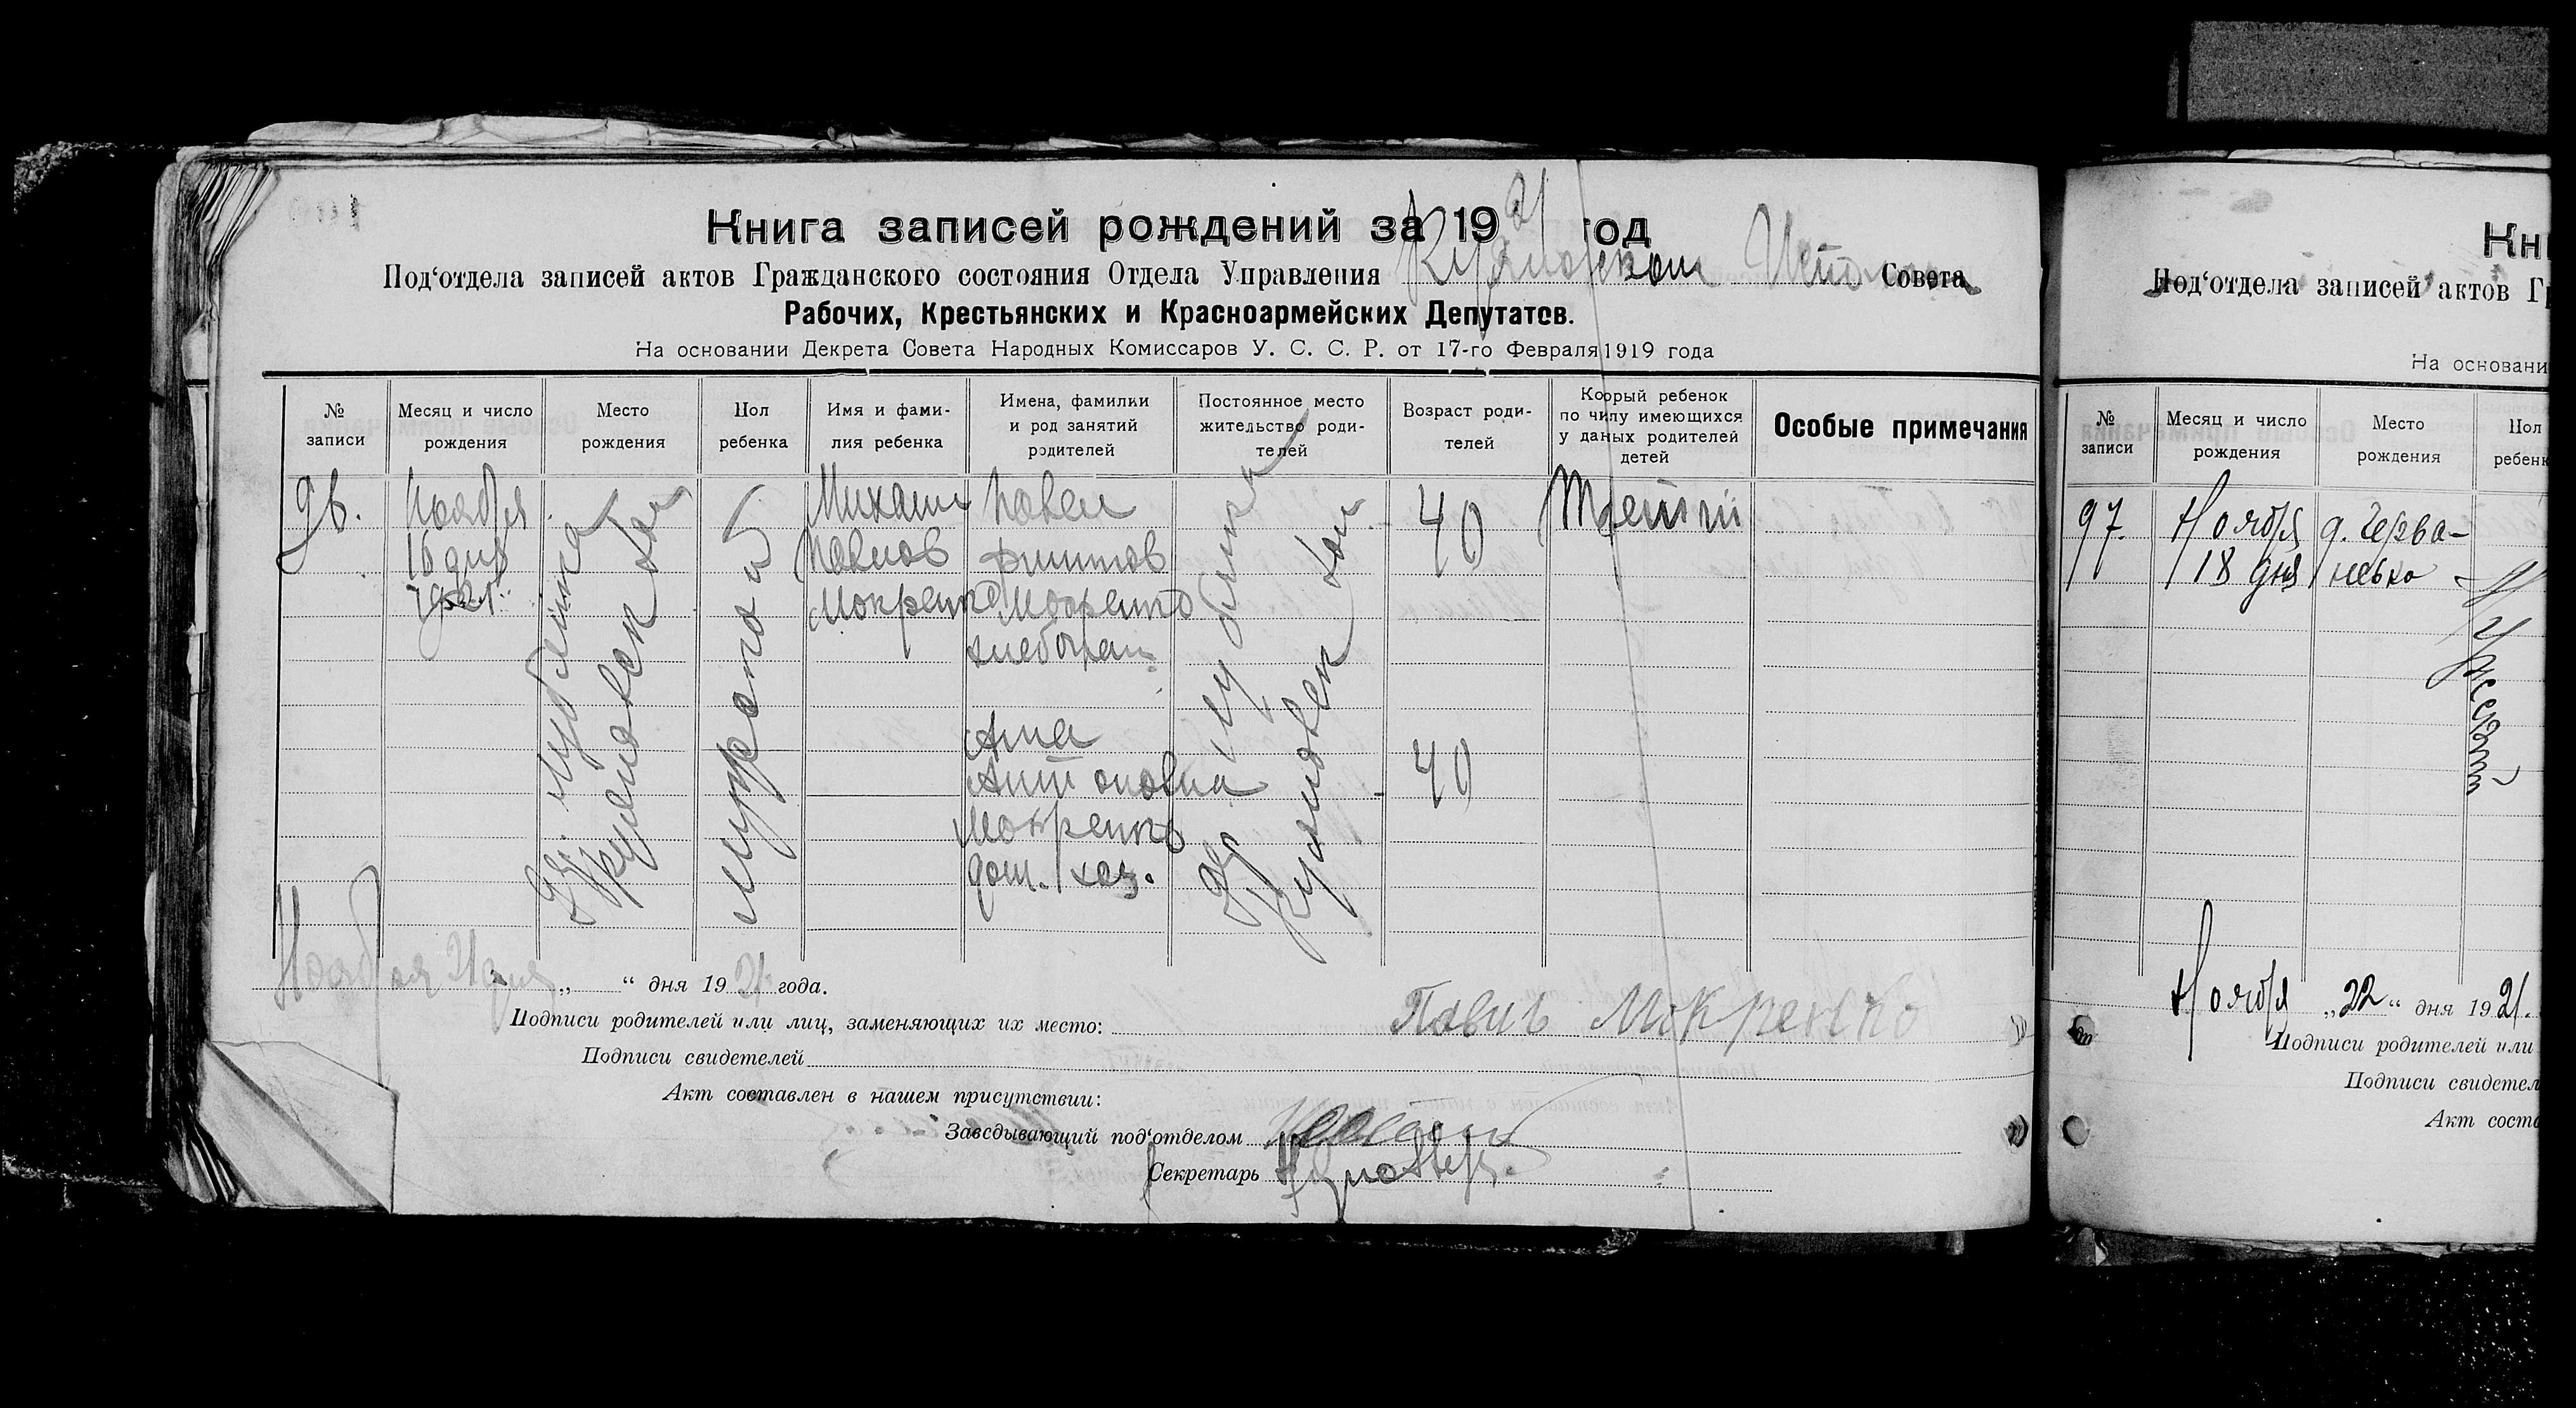 Книга записей рождений за 1921 год
Под‘отдела записей актов Гражданского состояния Отдела Управления Совета
Рабочих, Крестьянских и Красноармейских Депутатов.
На основании Декрета Совета Народных Комиссаров У. С. С. Р. от 17-го Февраля 1919 года
№ записи
Месяц и число рождения
Место рождения
Пол ребенка
Имя и фами-
лия ребенка
Имена, фамилии
и род занятий
родителей
Постоянное место
жительство роди-
телей
Возраст роди-
телей
Коорый ребенок
по чилу имеющихся
у даных родителей
детей
Особые примечания
96.
Ноября
16 дня
1921 г.
мужской
Михаил
Павлов
Мокренко
Павел
Филипов
Мокренко
хлебопаш
Анна
Антоновна
Мокренко
дом. хоз.
40
40
Третий
Ноября 21 дня „ “ дня 1921 года.
Подписи родителей или лиц, заменяющих их место: Павиъ Мокренко
Подписи свидетелей
Акт составлен в нашем присутствии:
Заведывающий под‘отделом
Секретарь
Кн
Под‘отдела записей актов Г
На основани
№ записи
Месяц и число рождения
Место рождения
Пол
ребенк
97.
Ноября
18 дня
д. Черва-
невка
Мужской
Ноября „22“ дня 1921.
Подписи родителей или
Подписи свидетел
Акт соста